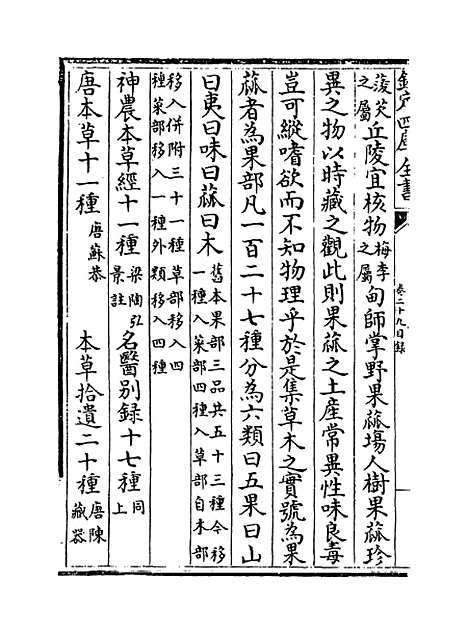 欽定四庫全書
卷二十九目錄
菱芡之屬丘陵宜核物梅李之屬甸師掌野果蓏場人樹果蓏珍
異之物以時藏之觀此則果蓏之土産常異性味良毒
豈可縱嗜欲而不知物理乎於是集草木之實號為果
蓏者為果部凡一百二十七種分為六類曰五果曰山
曰夷曰味曰蓏曰水舊本果部三品共五十三種今移一種入菜部四種入草部自木部
移入併附三十一種草部移入四種菜部移入一種外類移入四種
神農本草經十一種梁陶弘景註 名醫别録十七種同上
唐本草十一種唐蘇恭 本草拾遺二十種唐陳藏器